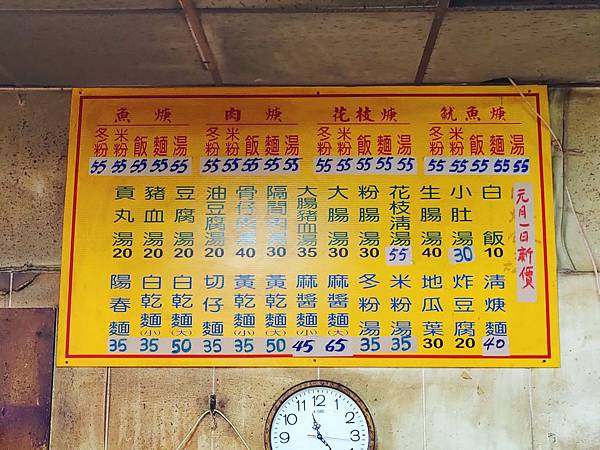 魚焿 肉焿 花枝焿 魷魚焿
冬粉 米粉 飯 麵 湯 冬粉 米粉 飯 麵 湯 冬粉 米粉 飯 麵 湯 冬粉 米粉 飯 麵 湯
55 55 55 55 55 55 55 55 55 55 55 55 55 55 55 55 55 55
貢丸湯 20
豬血湯 20
豆腐湯 20
油豆腐湯 20
骨仔肉湯 40
隔間肉湯 30
大腸豬血湯 35
大腸湯 30
粉腸湯 30
花枝清湯 55
生腸湯 40
小肚湯 30
白飯 10
元月一日新價
陽春麵 35
白乾麵(小) 35
白乾麵(大) 50
切仔麵 35
黃乾麵(小) 35
黃乾麵(大) 50
麻醬麵(小) 45
麻醬麵(大) 65
冬粉湯 35
米粉湯 35
地瓜葉 30
炸豆腐 20
清焿麵 40